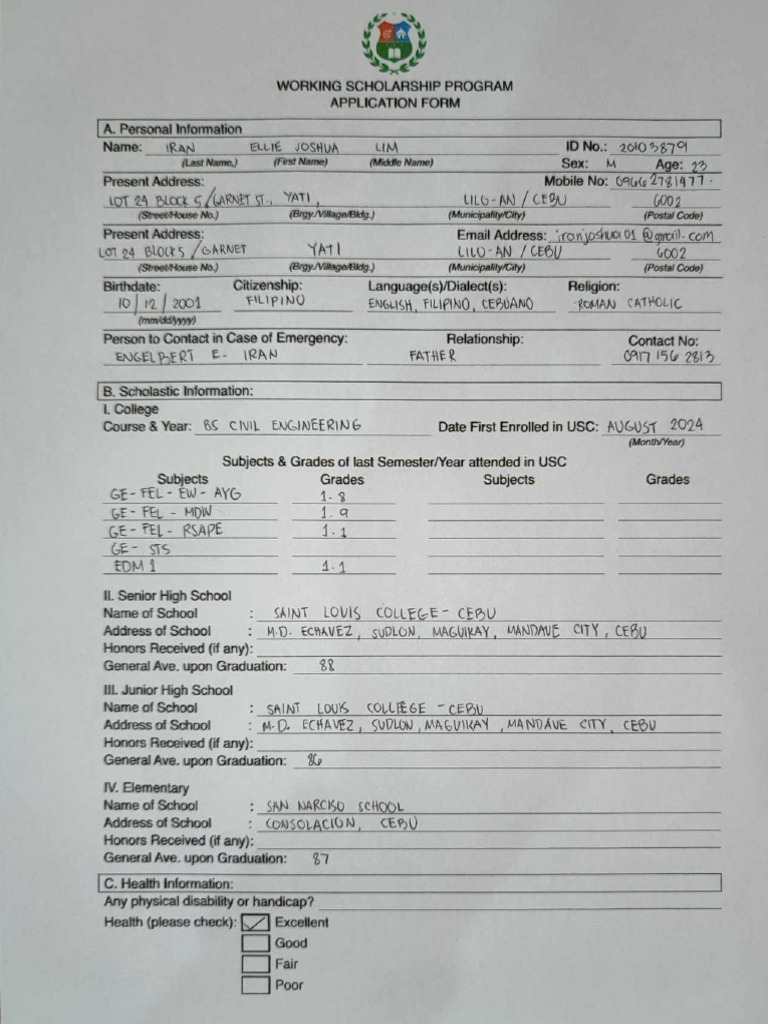 WORKING SCHOLARSHIP PROGRAM
APPLICATION FORM
A. Personal Information
Name: IRAN ELLIE JOSHUA LIM ID No.: 20103879
(Last Name,) (First Name) (Middle Name) Sex: M Age: 23
Present Address: Mobile No: 09662781477.
LOT 24 BLOCK 5/GARNET ST., YATI, LILO-AN / CEBU 6002
(Street/House No.) (Brgy./Village/Bldg.) (Municipality/City) (Postal Code)
Present Address: Email Address: iranjoshua01@gmail.com
LOT 24 BLOCK5 /GARNET YATI LILO-AN / CEBU 6002
(Street/House No.) (Brgy./Village/Bldg.) (Municipality/City) (Postal Code)
Birthdate: Citizenship: Language(s)/Dialect(s): Religion:
10/12/2001 FILIPINO ENGLISH, FILIPINO, CEBUANO ROMAN CATHOLIC
(mm/dd/yyyy)
Person to Contact in Case of Emergency: Relationship: Contact No:
ENGELBERT E. IRAN FATHER 0917 156 2813
B. Scholastic Information:
I. College
Course & Year: BS CIVIL ENGINEERING Date First Enrolled in USC: AUGUST 2024
(Month/Year)
Subjects & Grades of last Semester/Year attended in USC
Subjects Grades Subjects Grades
GE-FEL-EW-AYG 1.8
GE-FEL-MDW 1.9
GE-FEL-RSAPE 1.1
GE-STS
EDM 1 1.1
II. Senior High School
Name of School : SAINT LOUIS COLLEGE-CEBU
Address of School : M.D. ECHAVEZ, SUDLON, MAGUIKAY, MANDAUE CITY, CEBU
Honors Received (if any):
General Ave. upon Graduation: 88
III. Junior High School
Name of School : SAINT LOUIS COLLEGE-CEBU
Address of School : M.D. ECHAVEZ, SUDLON, MAGUIKAY, MANDAUE CITY, CEBU
Honors Received (if any):
General Ave. upon Graduation: 86
IV. Elementary
Name of School : SAN NARCISO SCHOOL
Address of School : CONSOLACION, CEBU
Honors Received (if any):
General Ave. upon Graduation: 87
C. Health Information:
Any physical disability or handicap?
Health (please check): Excellent
Good
Fair
Poor